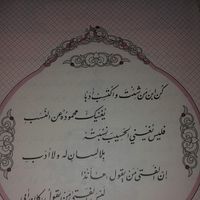 كن ابن من شئت واكتسب أدبا
يغنيك محموده عن النسب
فليس يغني الحسيب نسبته
بلا لسان له ولا أدب
إن الفتى من يقول ها أنا ذا
ليس الفتى من يقول كان أبي